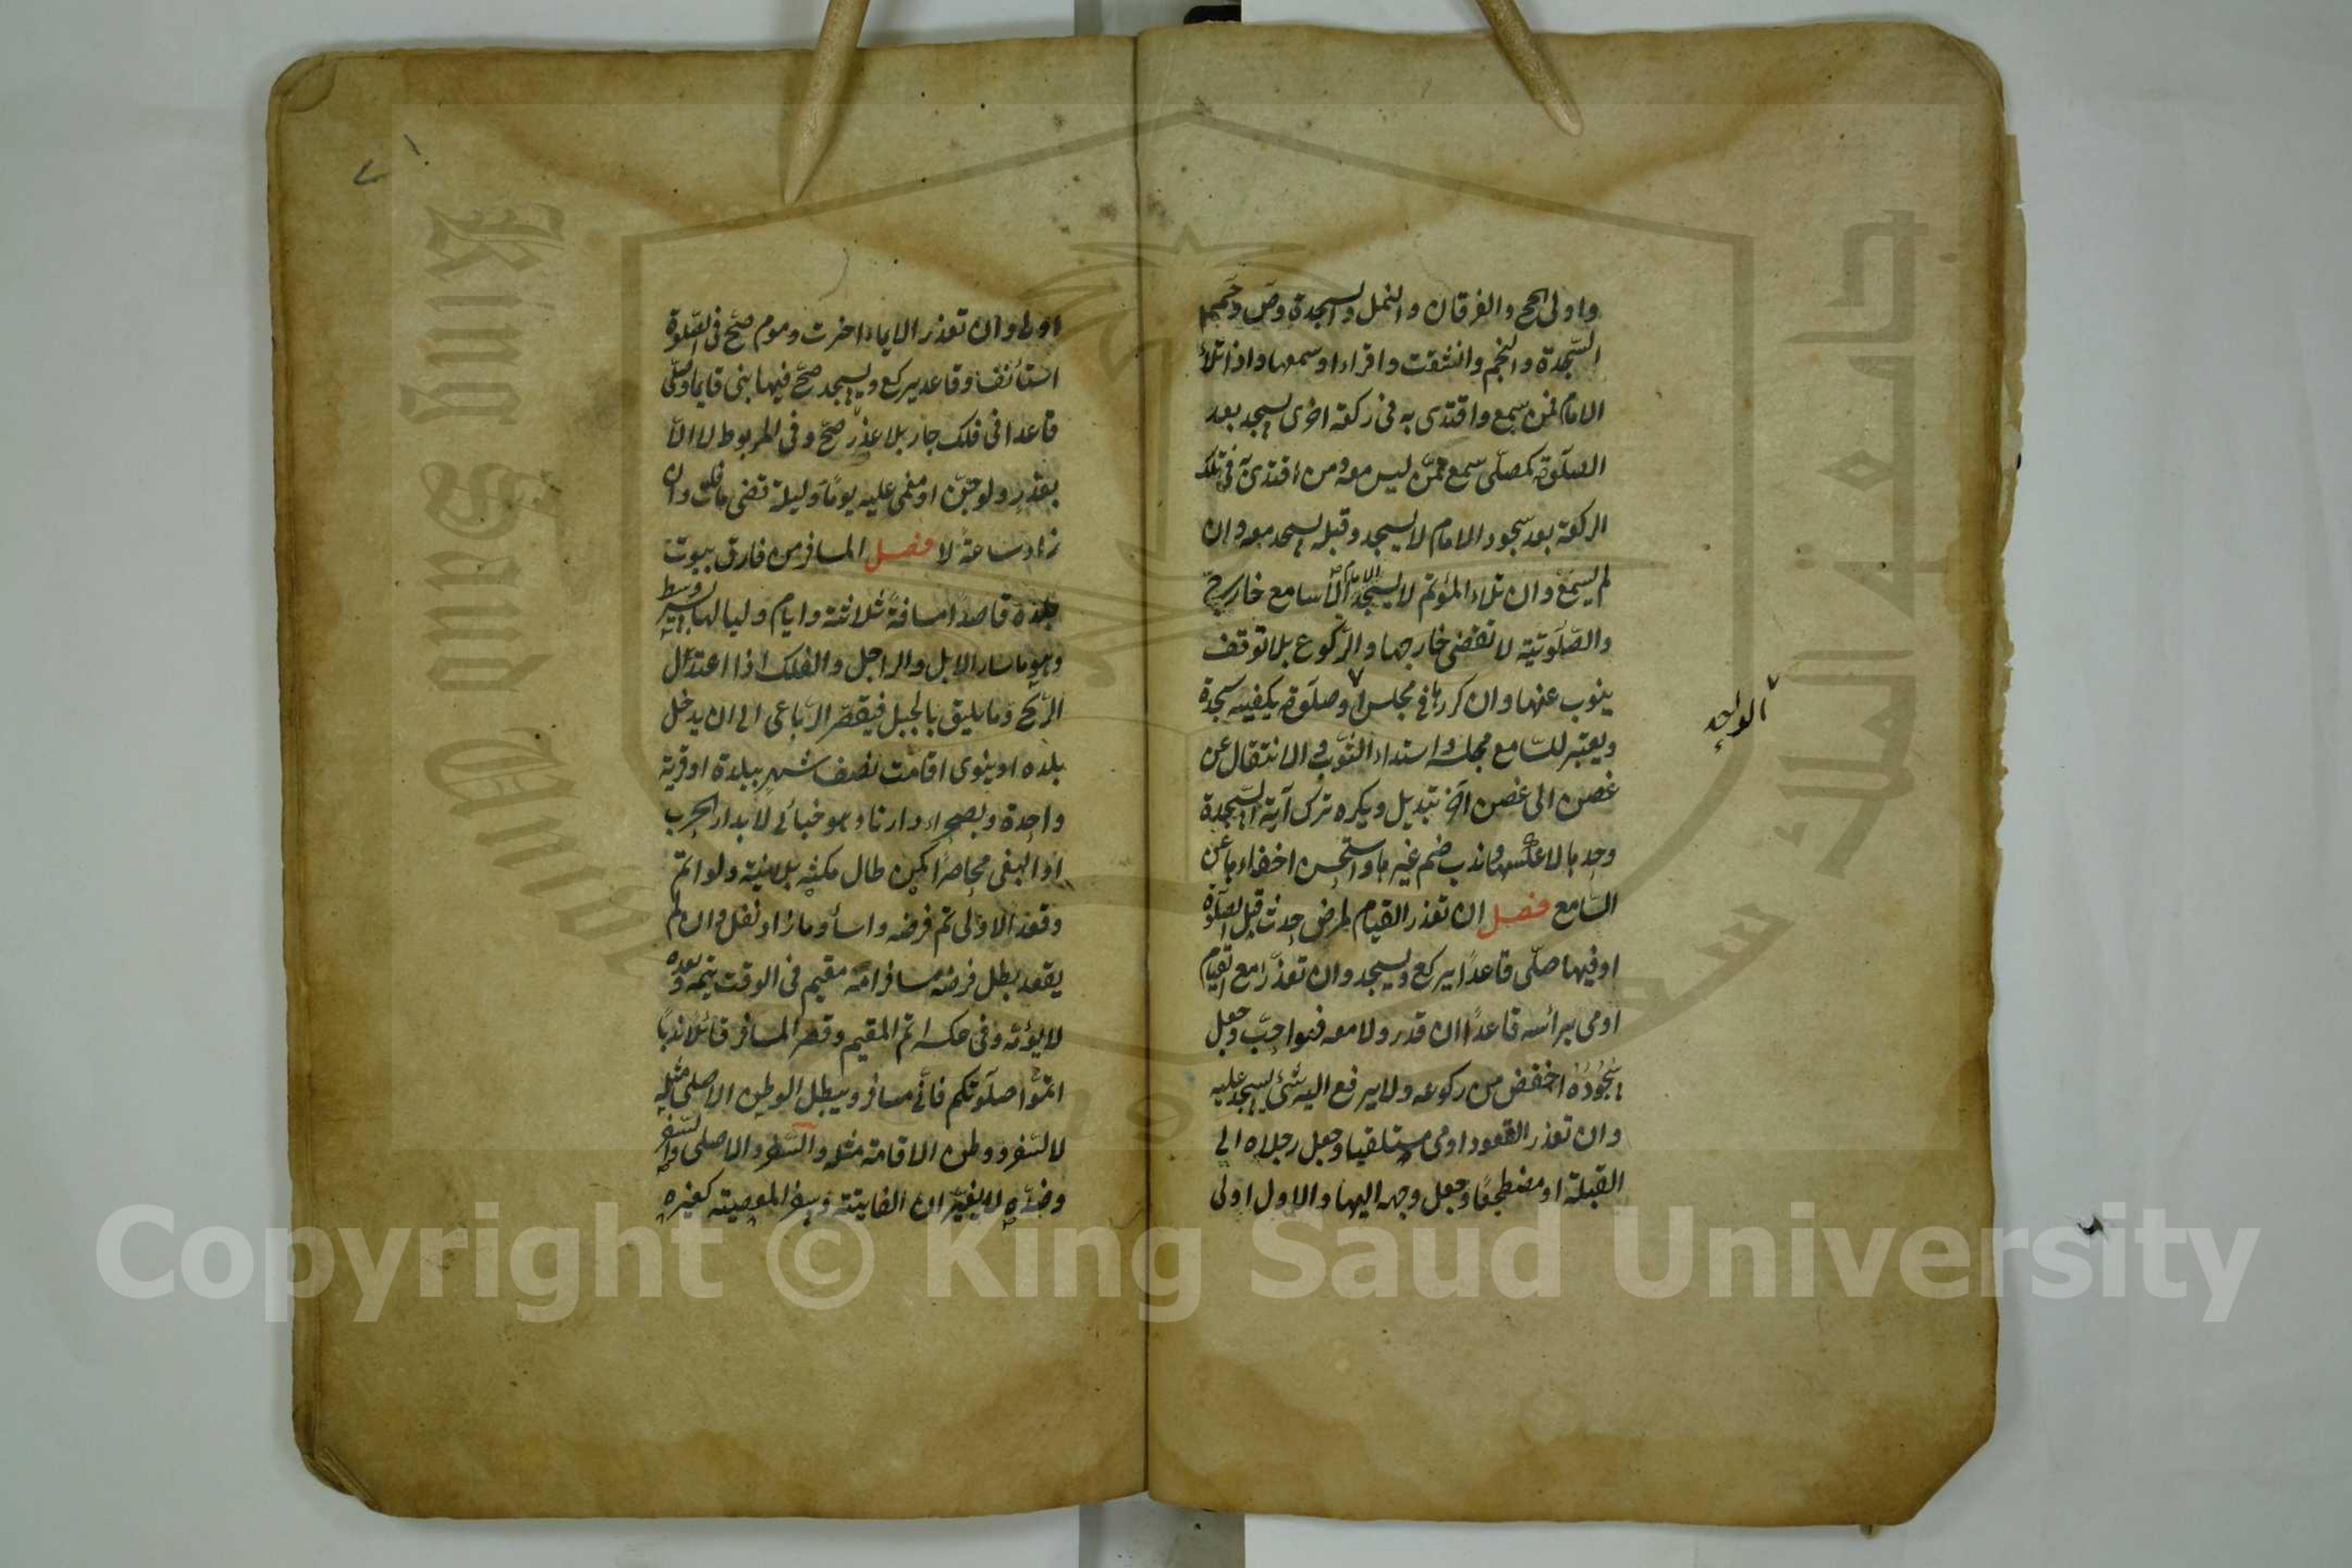 واولى الحج والفرقان والنمل والسجدة وص وحم
السّجدة والنجم وانشقت واقراء او سمعها واذا تلا
الامام فمن سمع واقتدى به فى ركعة اخرى يسجد بعد
الصلوة كمصلّى سمع ممّن ليس معه ومن اقتدى به فى تلك
الركعة بعد سجود الامام لا يسجد وقبله يسجد معه وان
لم يسمع وان تلاء المؤتم لا يسجد الا سامع خارجىّ
والصّلوتيّة لا تقضى خارجها والرّكوع بلا توقف
ينوب عنها وان كررها فى مجلس او صلوة يكفيه سجدة
ويعتبر للسّامع مجلسه واستداء الثوب والانتقال عن
غصن الى غصن آخر تبديل ويكره ترك آية السّجدة
وحدها لا عكسه وندب ضم غيرها واستحسن اخفاءها عن
السّامع فصل ان تعذر القيام لمرض حدث قبل الصلوة
او فيها صلّى قاعدًا يركع ويسجد وان تعذّرا مع القيام
اومى برأسه قاعدًا ان قدر ولا معه فهو احبّ وجعل
سجوده اخفض من ركوعه ولا يرفع اليه شئ يسجد عليه
وان تعذر القعود اومى مستلقيا وجعل رجلاه الى
القبلة او مضطجعًا وجعل وجهه اليها والاول اولى
الواحد
٧١
اولى وان تعذر الايماء اخرت وموم صحّ فى الصّلوة
استأنف وقاعد يركع ويسجد صحّ فيها بنى قايما وصلّى
قاعدا فى فلك جار بلا عذر صحّ وفى المربوط لا الّا
بعذر ولو جنّ او مغمى عليه يومًا وليلة قضى ما فات وان
زاد ساعة لا فصل المسافر من فارق بيوت
بلده قاصدًا مسافة ثلاثة وايام ولياليها بسير وسط
وهو ما سار الابل والراجل والفلك اذا اعتدل
الرّيح وما يليق بالجبل فيقصر الرّباعى الى ان يدخل
بلده او ينوى اقامت نصف شهر ببلدة او قرية
واحدة وبصحراء دارنا وهو خبائى لا بدار الحرب
او البغى محاصرًا كمن طال مكثه بلا نيّة ولو اتمّ
وقعد الاولى تم فرضه واساء وما زاد نفل وان لم
يقعد بطل فرضه مسافر امّه مقيم فى الوقت يتمّ وبعده
لا يؤمّه وفى عكسه اتم المقيم وقصر المسافر قائلا ندبًا
اتمّوا صلوتكم فانّى مسافر ويبطل الوطن الاصلى مثله
لا السّفر ووطن الاقامة مثله والسّفر والاصلى والسّفر
وضدّه لا يغيّران الفايتة وسفر المعصية كغيره
King Saud University
جامعة الملك سعود
1957
Copyright © King Saud University